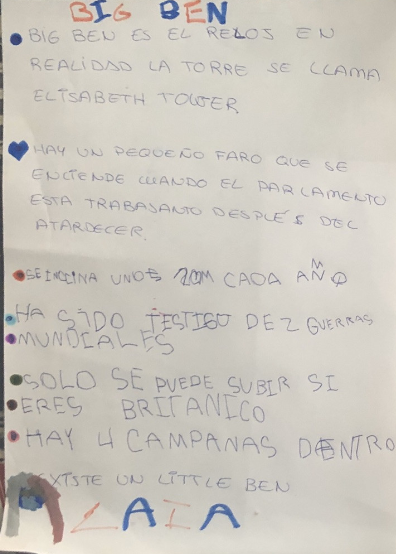 BIG BEN
BIG BEN ES EL RELOS EN
REALIDAD LA TORRE SE LLAMA
ELISABETH TOWER
HAY UN PEQUEÑO FARO QUE SE
ENCIENDE CUANDO EL PARLAMENTO
ESTA TRABASANTO DESPLÉS DEL
ATARDECER.
SE INCLINA UNOS CADA AÑO
HA SIDO TESTIGO DE 2 GUERRAS
MUNDIALES
SOLO SE PUEDE SUBIR SI
ERES BRITANICO
HAY 4 CAMPANAS DENTRO
EXISTE UN LITTLE BEN
LAIA